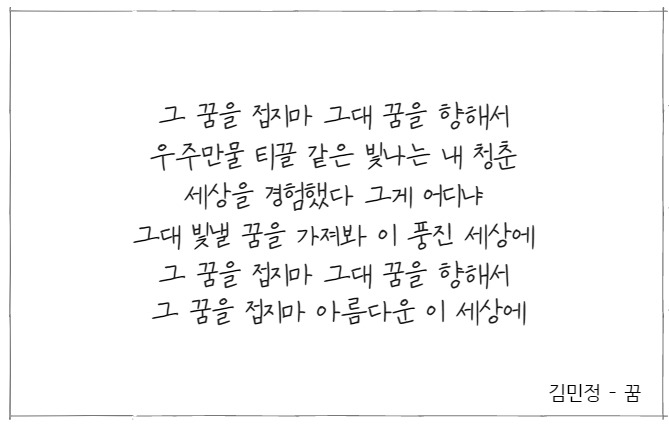 그 꿈을 접지마 그대 꿈을 향해서
우주만물 티끌 같은 빛나는 내 청춘
세상을 경험했다 그게 어디냐
그대 빛낼 꿈을 가져봐 이 풍진 세상에
그 꿈을 접지마 그대 꿈을 향해서
그 꿈을 접지마 아름다운 이 세상에
김민정 - 꿈